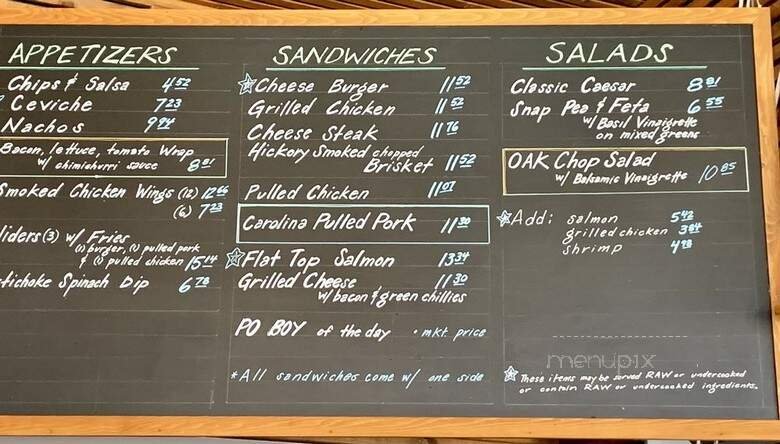 APPETIZERS
Chips & Salsa 4.52
Ceviche 7.23
Nachos 9.94
Bacon, lettuce, tomato Wrap
w/ chimichurri sauce 8.81
Smoked Chicken Wings (12) 12.66
(6) 7.23
liders (3) w/ Fries
(1) burger, (1) pulled pork
& (1) pulled chicken 15.14
tichoke Spinach Dip 6.78
SANDWICHES
Cheese Burger 11.52
Grilled Chicken 11.52
Cheese Steak 11.76
Hickory Smoked chopped
Brisket 11.52
Pulled Chicken 11.07
Carolina Pulled Pork 11.30
Flat Top Salmon 13.34
Grilled Cheese 11.30
w/ bacon & green chillies
PO BOY of the day • mkt. price
*All sandwiches come w/ one side
SALADS
Classic Caesar 8.81
Snap Pea & Feta 6.55
w/ Basil Vinaigrette
on mixed greens
OAK Chop Salad
w/ Balsamic Vinaigrette 10.85
Add: salmon 5.42
grilled chicken 3.84
shrimp 4.98
menupix
These items may be served RAW or undercooked
or contain RAW or undercooked ingredients.